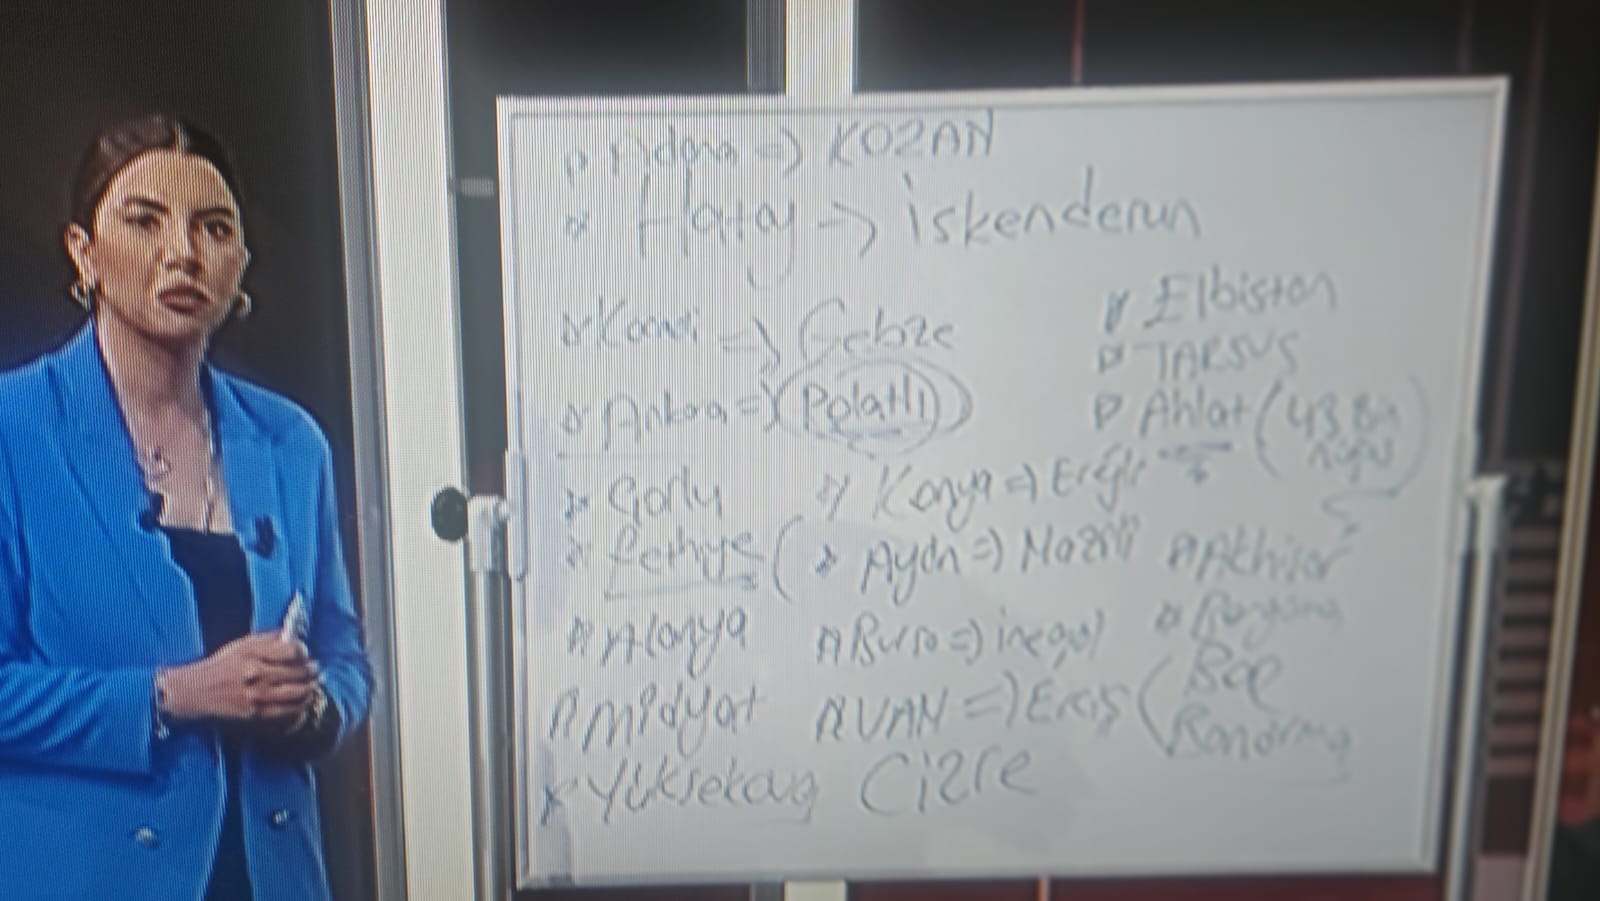 Adana => KOZAN
Hatay -> iskenderun
Kocaeli => Gebze
Elbistan
TARSUS
Ankara => (Polatlı)
Ahlat (43 Bin nüfus)
Çorlu
Konya => Ereğli
Fethiye (
Aydın => Nazilli
Akhisar
Alanya
Bursa => inegöl
Midyat
VAN => Erciş (
Bandırma
Yüksekova Cizre